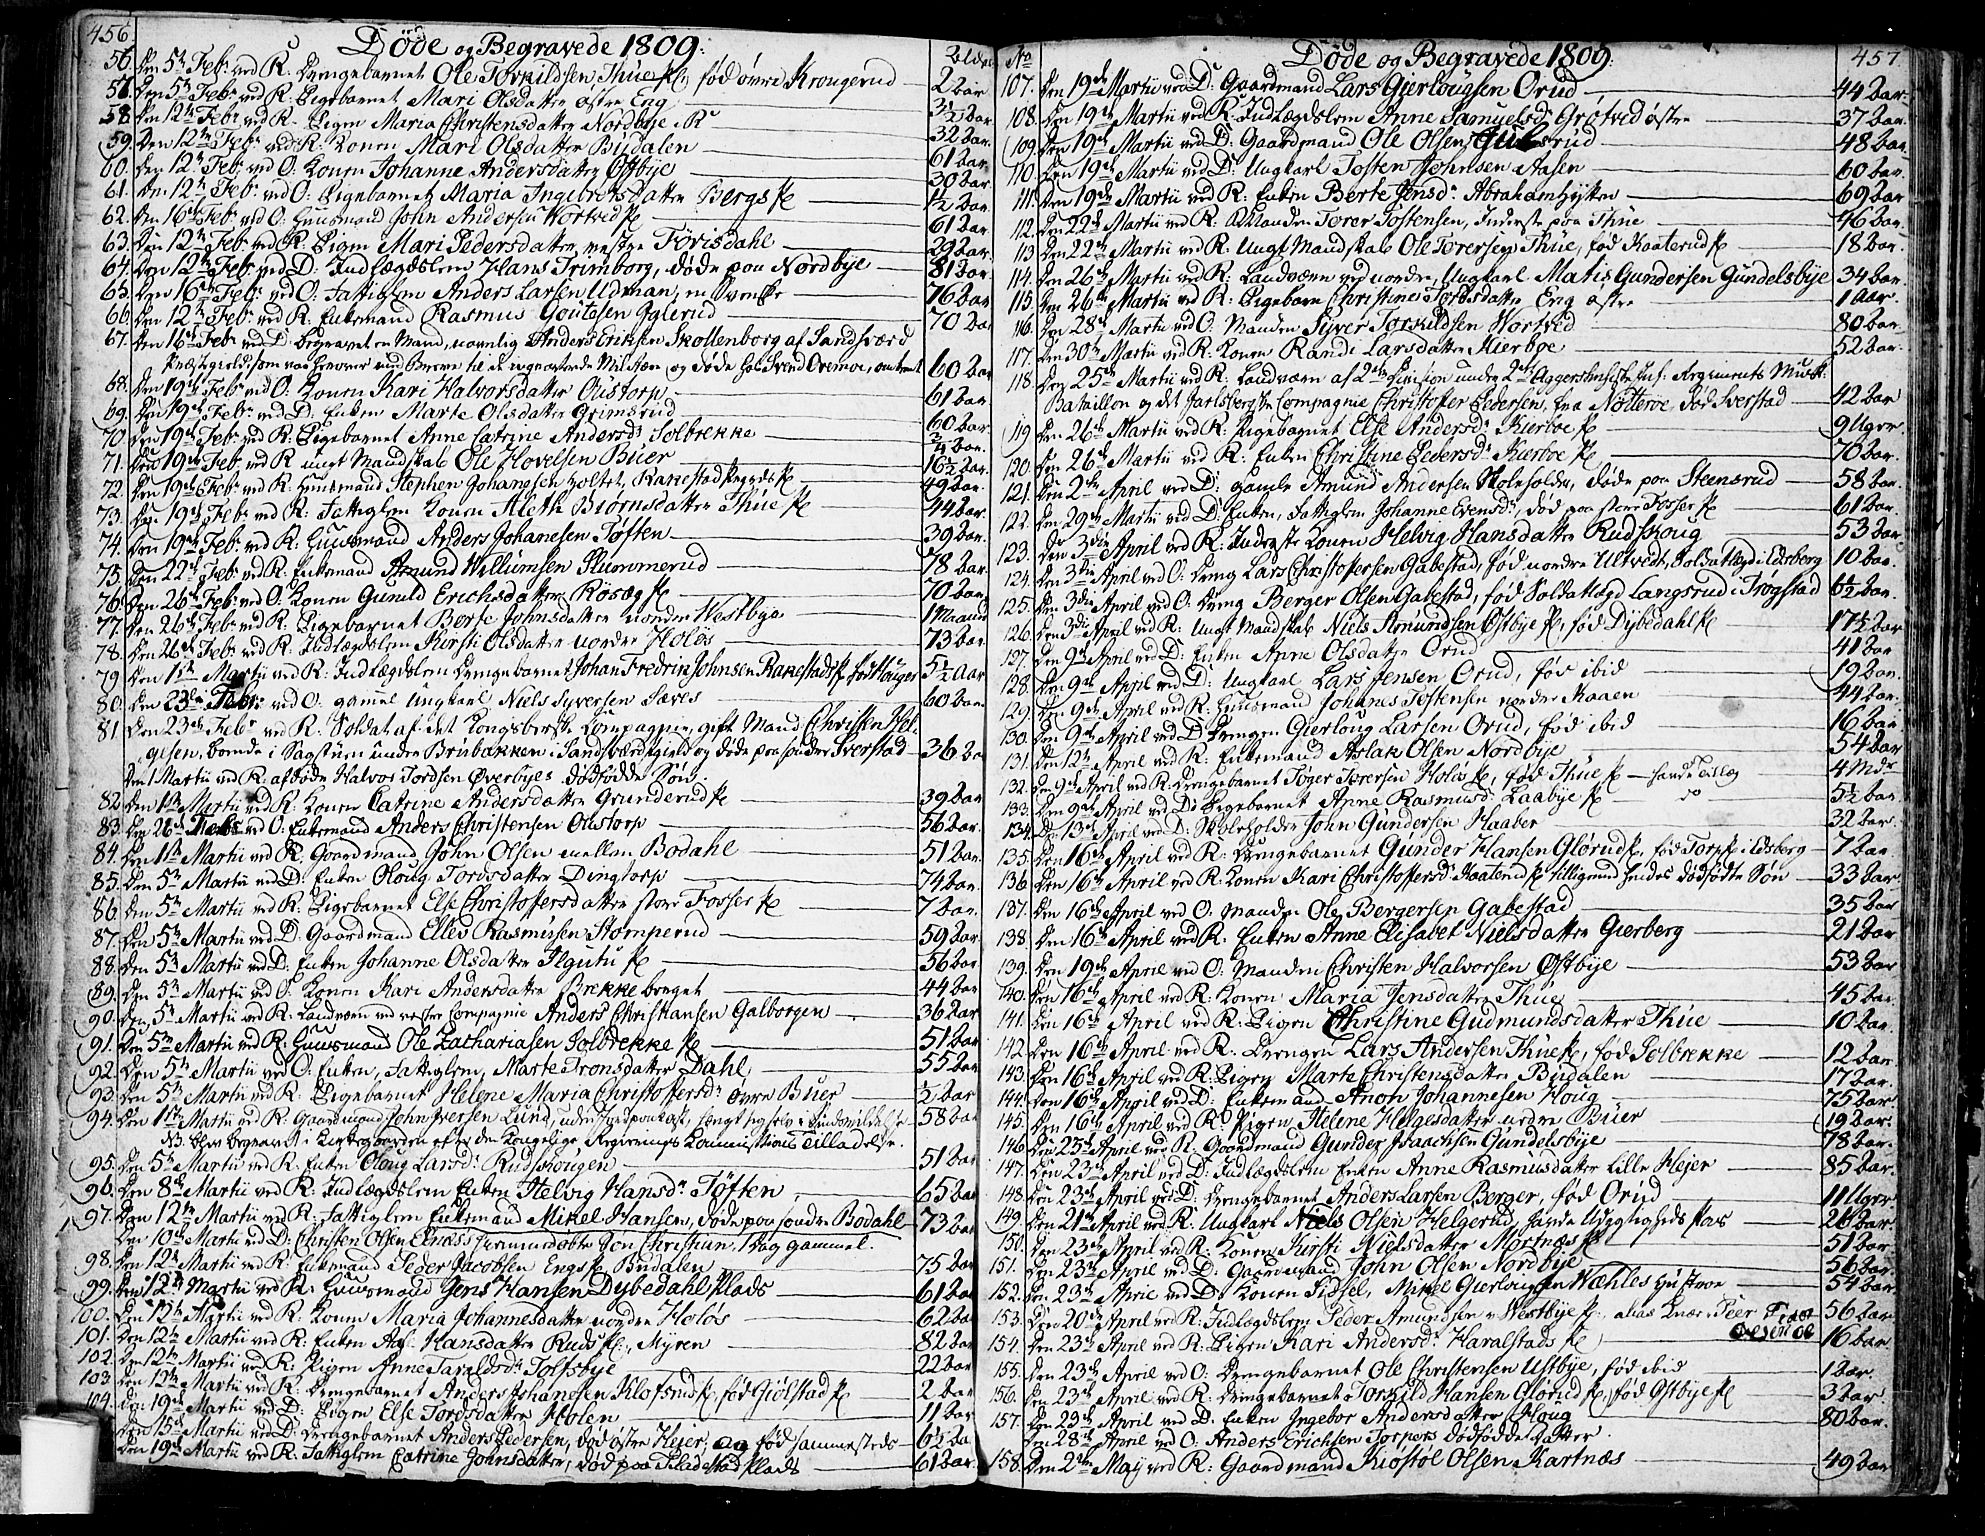 456.
Döde og Begravede 1809.
Alder
56. Den 5te Febr ved R: Drengebarnet Ole Torkildsen Thue fød øvre Krougerud — 2 aar
57. Den 5te Febr ved R: Pigebarnet Mari Olsdatter østre Eng — 3½ aar
58. Den 12te Febr ved R: Pigen Maria Christensdatter Nordbye — 32 aar
59. Den 12te Febr ved R: Konen Mari Olsdatter Budalen — 61 aar
60. Den 12te Febr ved O: Konen Johanne Andersdatter Østbye — 30 aar
61. Den 12te Febr ved O: Pigebarnet Maria Ingebretsdatter Bergs — ½ aar
62. Den 16de Febr ved O: Huusmand John Andersen Wortved — 61 aar
63. Den 12te Febr ved R: Pigen Mari Pedersdatter vestre Torisdahl — 29 aar
64. Den 12te Febr ved D: Indlægdslem Hans Trimborg, døde paa Nordbye — 81 aar
65. Den 16de Febr ved O: Fattiglem Anders Larsen Udman, en Svenske — 76 aar
66. Den 12te Febr ved R: Enkemand Rasmus Goutesen Iglerud — 70 aar
67. Den 16de Febr ved D: begravet en Mand, navnlig Anders Eriksen Skollenborg af Sandsværd
Præstegield, som var og døde hos Svend omtrent 60 aar
68. Den 19de Febr ved O: Konen Kari Halvorsdatter Oustorp — 61 aar
69. Den 19de Febr ved D: Enken Marte Olsdatter Grimsrud — 60 aar
70. Den 19de Febr ved R: Pigebarnet Anne Catrine Andersdr Solbrekke — ¾ aar
71. Den 19de Febr ved R ungt Mandskab Ole Hovelsen Buer — 16½ aar
72. Den 19de Febr ved R: Huusmand Stephen Johannesen — 49 aar
73. Den 19de Febr ved R: Fattiglem Konen Aleth Biørnsdatter Thue — 44 aar
74. Den 19de Febr ved R: Huusmand Anders Johanesen Tøften — 39 aar
75. Den 22de Febr ved R: Enkemand Amund Willumsen Slummerud — 78 aar
76. Den 26de Febr ved O: Konen Gunild Erichsdatter Røsæg — 70 aar
77. Den 26de Febr ved R: Pigebarnet Berte Johnsdatter nordre Westbye — 1 Maaned
78. Den 26de Febr ved R: Indlægdslem Kersti Olsdatter nordre Holøs — 73 aar
79. Den 1ste Martii ved R: Indlægdslem Drengebarnet Johan Fredrik Johnsen Rakestads fød Houger 5½ aar
80. Den 23de Febr ved O: gammel Ungkarl Niels Syversen Sæves — 60 aar
81. Den 23de Febr ved R: Soldat af det Kongsbergske Compagnie, gift Mand Christen Hel-
gesen, boende i Sagstuen under Brubakken i Sandsværds gield og døde paa søndre Sverstad — 36 aar
Den 1 Martii ved R. afdøde Halvor Tordsen Øverbyes dødfødde Søn.
82. Den 1ste Martii ved R: Konen Catrine Andersdatter Grunderud — 39 aar
83. Den 26de Febr ved O: Enkemand Anders Christensen Oustorp — 56 aar
84. Den 1ste Martii ved R: Goardmand John Olsen mellem Bodahl — 51 aar
85. Den 5te Martii ved D: Enken Oloug Tordsdatter Dingtorp — 74 aar
86. Den 5te Martii ved R: Pigebarnet Else Christophersdatter store Fosser — 7 aar
87. Den 5te Martii ved D: Goardmand Ellev Rasmussen Stomperud — 59 aar
88. Den 5te Martii ved D: Enken Johanne Olsdatter — 56 aar
89. Den 5te Martii ved O: Konen Kari Andersdatter Brekke — 44 aar
90. Den 5te Martii ved R: Landværn ved vestre Compagnie Anders Christiansen Galborgen — 36 aar
91. Den 5te Martii ved R: Huusmand Ole Zachariasen Solbrekke — 51 aar
92. Den 5te Martii ved O: Enken, Fattiglem, Marte Tronsdatter Dahl — 55 aar
93. Den 5te Martii ved R: Pigebarnet Helene Maria Christophersdr øvre Buer — ½ aar
94. Den 1ste Martii ved R: Goardmand John Iversen Lund, hengt sig selv i Sindsvildelse — 58 aar
NB. blev begravet i Kirkegaarden efter den Kongelige Regierings Commissions Tilladelse.
95. Den 5te Martii ved R: Enken Oloug Larsdr Rudskougen — 51 aar
96. Den 8de Martii ved R: Indlægdslem Enken Helvig Hansdr Tøften — 65 aar
97. Den 12te Martii ved R: Fattiglem Enkemand Mikel Hansen, døde paa søndre Bodahl — 73 aar
Den 10de Martii ved D: Christen Olsen Søn Christian, 1 Dag gammel.
98. Den 12te Martii ved R: Enkemand Peder Jacobsen Engs Budalen — 75 aar
99. Den 12te Martii ved R: Huusmand Jens Hansen Dybedahl Plads — 61 aar
100. Den 12te Martii ved R: Konen Maria Johannesdatter nordre Holøs — 62 aar
101. Den 12te Martii ved R: Enken Hansdatter Ruds, Myren — 82 aar
102. Den 12te Martii ved R: Pigen Anne Taraldsdr Tolfsbye — 22 aar
103. Den 12te Martii ved R: Drengebarnet Anders Johannesen Klofsrud, fød Giølstad — 2 aar
104. Den 19de Martii ved D: Pigen Else Tordsdatter Holen — 11 aar
Den 15de Martii ved D: Drengebarnet Anders Pedersen, død østre Hejer, og fød sammesteds — 6½ aar
Den 19de Martii ved R: Fattiglem Catrine Johnsdatter, død paa Plads — 61 aar
No
Döde og Begravede 1809.
457
107. Den 19de Martii ved D: Goardmand Lars Gierlougsen Orud — 44 aar
108. Den 19de Martii ved R: Indlægdslem Anne Samuelsdr Grøtved østre — 37 aar
109. Den 19de Martii ved D: Goardmand Ole Olsen — 48 aar
110. Den 19de Martii ved D: Ungkarl Tosten Johnsen Aasen — 60 aar
111. Den 19de Martii ved R: Enken Berte Jonsdr Abrahamhytten — 69 aar
112. Den 22de Martii ved R: Manden Torer Tostensen, Inderste paa Thue — 46 aar
113. Den 22de Martii ved R: Ungt Mandskab Ole Torersen Thue, fød Kaaterud — 18 aar
114. Den 26de Martii ved R: Landværn ved nordre, Ungkarl Matis Gundersen Gundelsbye 34 aar
115. Den 26de Martii ved R: Pigebarn Christine Tordsdatter Eng østre — 1 aar
116. Den 28de Martii ved O: Manden Syver Torkildsen Wortved — 80 aar
117. Den 30te Martii ved R: Konen Randi Larsdatter Kierboe — 52 aar
118. Den 25de Martii ved R: Landværn af 2den Division under 2det Aggershusiske Inf: Regiments Musk:
Bataillon og det Jarlsbergske Compagnie Christopher Pedersen, fra Nøtterøe, død Sverstad — 42 aar
119. Den 26de Martii ved R: Pigebarnet Else Andersdr Kierboe — 9 Uger
120. Den 26de Martii ved R: Enken Christine Pedersdr Kierboe — 70 aar
121. Den 2den April ved D: gamle Amund Andersen Skoleholder, døde paa Steensrud — 58 aar
122. Den 29de Martii ved D: Enken, Fattiglem Johanne Evensdr, død paa store Fosser — 61 aar
123. Den 3die April ved R: Inderste Konen Helvig Hansdatter Rudskoug — 53 aar
124. Den 3die April ved O: Dreng Lars Christophersen Gabestad, fød nordre Ultvedt, Soldatlægd i Edsberg 10 aar
125. Den 3die April ved O: Dreng Berger Olsen Gabestad, fød Soldatlægd Langsrud i Trøgstad 6½ aar
126. Den 3die April ved R: Ungt Mandskab Niels Amundsen Østbye, fød Dybedahl — 17½ aar
127. Den 9de April ved D: Enken Anne Olsdatter Orud — 41 aar
128. Den 9de April ved D: Ungkarl Lars Jensen Orud, fød ibid — 19 aar
129. Den 9de April ved R: Huusmand Johanes Tostensen nordre Kaaen — 44 aar
130. Den 9de April ved D: Drengen Gierloug Larsen Orud, fød ibid — 16 aar
131. Den 12te April ved R: Enkemand Aslak Olsen Nordbye — 54 aar
132. Den 9de April ved R: Drengebarnet Torger Torersen Holøs, fød Thue — — 4 Mdr
133. Den 9de April ved D: Pigebarnet Anne Rasmusdr Laabye — do — 5½ aar
134. Den 13de April ved D: Skoleholder John Gundersen Haaber — 32 aar
135. Den 16de April ved R: Drengebarnet Gunder Hansen Glørud, fød Torp i Edsberg — 7 aar
136. Den 16de April ved R: Konen Kari Christophersdr Kaaterud tilligemed hendes dødfødte Søn — 33 aar
137. Den 16de April ved O: Manden Ole Bergersen Gabestad — 35 aar
138. Den 16de April ved R: Enken Anne Elisabet Nielsdatter Gierberg — 21 aar
139. Den 19de April ved O: Manden Christen Halvorsen Østbye — 53 aar
140. Den 16de April ved R: Konen Maria Jensdatter Thue — 45 aar
141. Den 16de April ved R: Pigen Christine Gudmundsdatter Thue — 10 aar
142. Den 16de April ved R: Drengen Lars Andersen Thue, fød Solbrekke — 12 aar
143. Den 16de April ved R: Pigen Marte Christensdatter Budalen — 17 aar
144. Den 16de April ved D: Enkemand Anon Johannesen Houg — 75 aar
145. Den 16de April ved R: Pigen Helene Helgesdatter nedre Buer — 19 aar
146. Den 25de April ved R: Goardmand Gunder Isaachsen Gundelsbye — 78 aar
147. Den 23de April ved D: Indlægdslem Enken Anne Rasmusdatter Lille Hejer — 85 aar
148. Den 23de April ved D: Drengebarnet Anders Larsen Berger, fød Orud — 11 Uger
149. Den 21de April ved R: Ungkarl Niels Olsen Helgerud, havde Udygtigheds Pas — 26 aar
150. Den 23de April ved R: Konen Kirsti Nielsdatter Mortnæs — 51 aar
151. Den 23de April ved D: Goardmand John Olsen Nordbye — 56 aar
152. Den 23de April ved D: Konen Sidsel, Mikel Gierlougsen Wæhles Hustroe — 54 aar
153. Den 20de April ved R: Indlægdslem Peder Amundsen Westbye, alias Knæ-Peer — 56 aar
154. Den 23de April ved R: Pigen Kari Andersdr Haralstads — 16 aar
155. Den 23de April ved O: Drengebarnet Ole Christensen Østbye, fød ibid — 1 aar
156. Den 23de April ved R: Drengebarnet Torkild Hansen Glørud, fød Østbye — 3 aar
157. Den 23de April ved D: Enken Ingebor Andersdatter Houg — 80 aar
Den 28de April ved O: Anders Erichsen Torpers dødfødde datter.
158. Den 2den Maj ved R: Goardmand Kiøstol Olsen Kartnæs — 49 aar